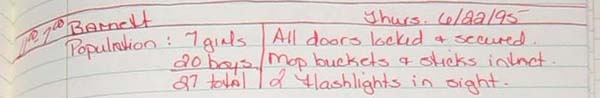 11⁰⁰ 7⁰⁰ Barnett Thurs. 6/22/95
Population : 7 girls All doors locked & secured.
20 boys Mop buckets & sticks intact.
27 total 2 flashlights in sight.